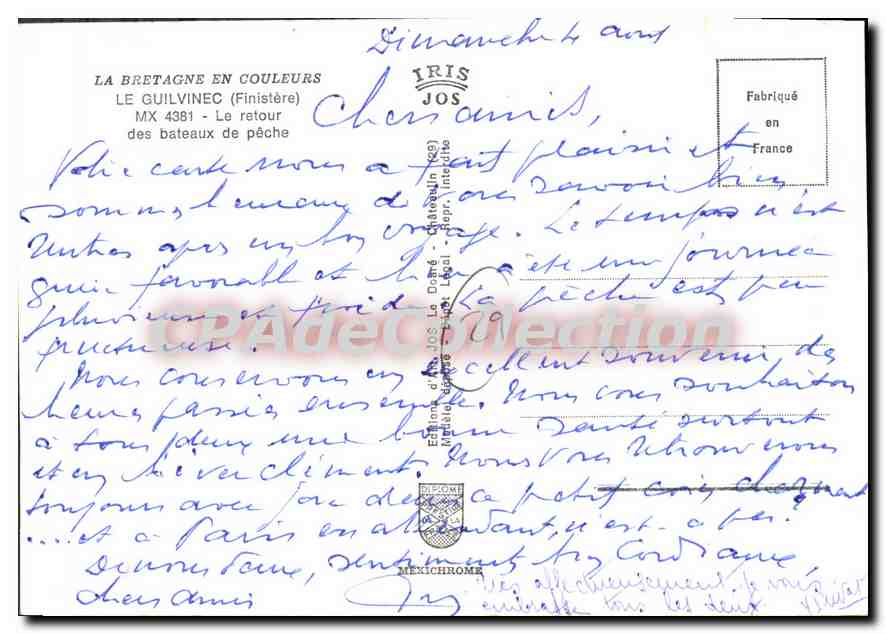 Dimanche 4 août
LA BRETAGNE EN COULEURS
LE GUILVINEC (Finistère)
MX 4381 - Le retour
des bateaux de pêche
IRIS
JOS
Fabriqué
en
France
Chers amis,
Votre carte nous a fait plaisir et
sommes heureux de vous savoir bien
rentrés après un bon voyage. Le temps n'est
guère favorable et hier a été une journée
pluvieuse et froide. La pêche est peu
fructueuse.
Nous conservons un excellent souvenir des
heures passées ensemble. Nous vous souhaitons
à tous deux une bonne santé surtout
et un hiver clément. Nous vous retrouverons
toujours avec joie dans ce petit coin charmant
....et à Paris en attendant, n'est-ce pas?
De nous deux, sentiments très cordiaux,
chers amis
Très affectueusement je vous
embrasse tous les deux
Editions d'Art JOS Le Doaré - Châteaulin (29)
Modèle déposé - Dépôt Légal - Repr. interdite
DIPLOME
MEXICHROME
CPAdeCollection